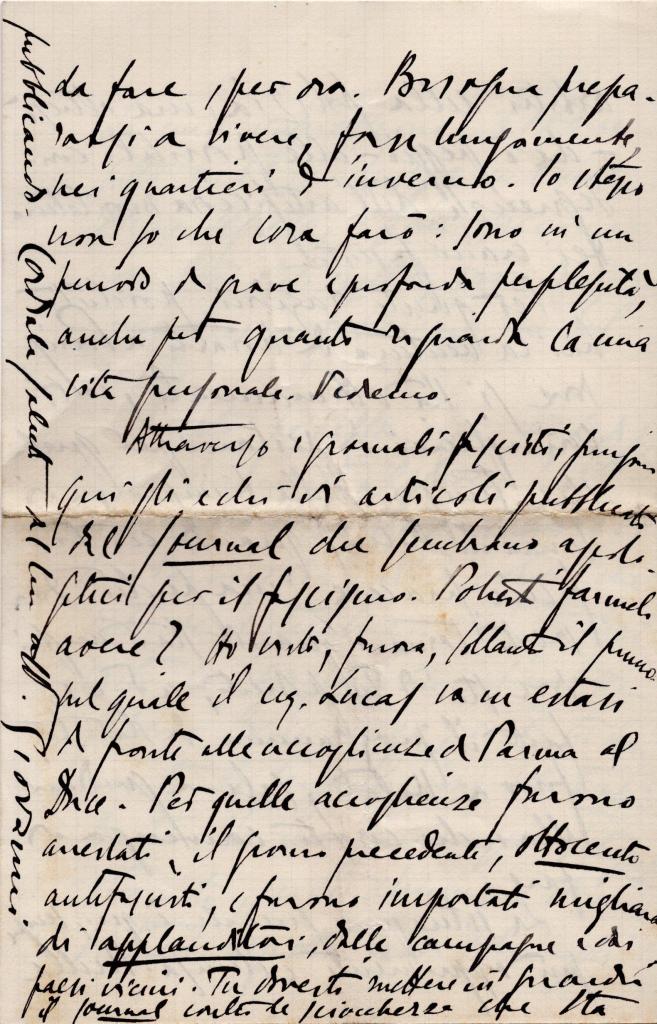 da fare, per ora. Bisogna prepa-
rarsi a vivere, forse lungamente,
nei quartieri d'inverno. Io stesso
non so che cosa farò: sono in un
periodo di grave e profonda perplessità,
anche per quanto riguarda la mia
vita personale. Vedremo.
Attraverso i giornali fascisti, giungono
qui gli echi di articoli pubblicati
dal Journal che sembrano apolo-
getici per il fascismo. Potresti farmeli
avere? Ho visto, finora, soltanto il primo
nel quale il sig. Lucas va in estasi
di fronte alle accoglienze di Parma al
Duce. Per quelle accoglienze furono
arrestati, il giorno precedente, ottocento
antifascisti, e furono importati migliaia
di applauditori, dalle campagne e dai
paesi vicini. Tu dovresti mettere in guardia
il Journal contro le sciocchezze che sta
pubblicando. Cordiali saluti dal tuo aff. Giovanni